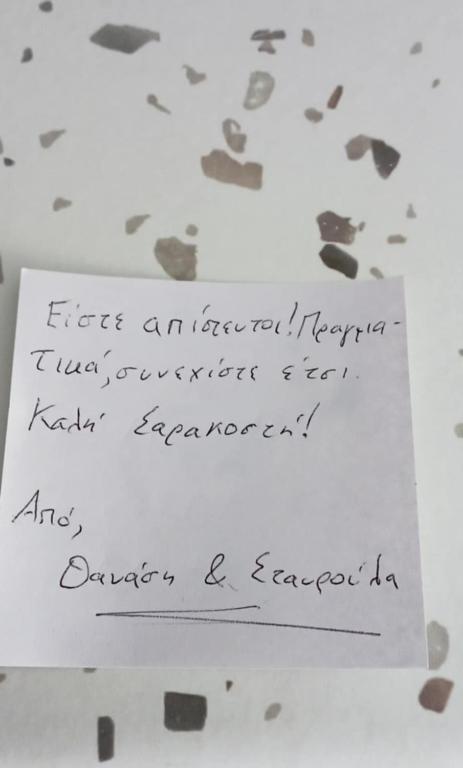 Είστε απίστευτοι! Πραγμα-
τικά, συνεχίστε έτσι.
Καλή Σαρακοστή!
Από,
Θανάση & Σταυρούλα